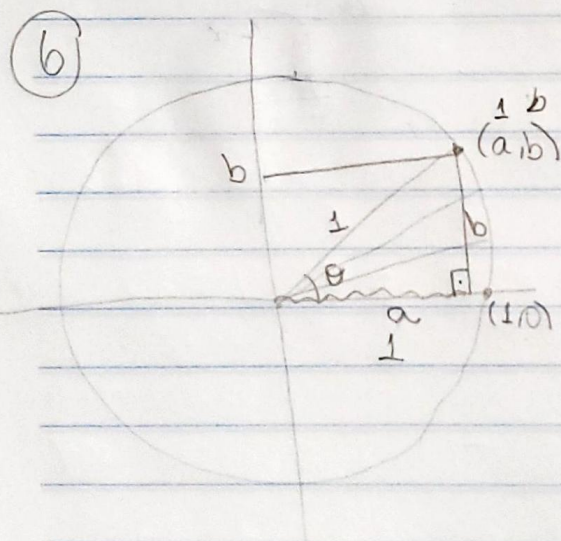 6
1 b
(a,b)
b
1
b
θ
a
(1,0)
1